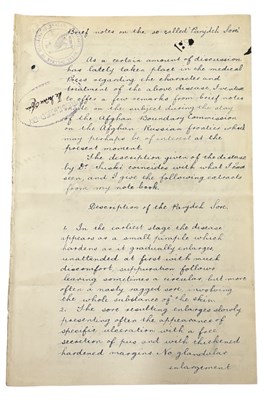 Brief notes on the so called Panjdeh Sore
As a certain amount of discussion
has lately taken place in the medical
Press regarding the character and
treatment of the above disease, I venture
to offer a few remarks from brief notes
made on the subject during the stay
of the Afghan Boundary Commission
on the Afghan Russian frontier which
may perhaps be of interest at the
present moment.
The description given of the disease
by Dr. coincides with what I have
seen, and I give the following extracts
from my note book.
Description of the Panjdeh Sore.
1. In the earliest stage the disease
appears as a small pimple which
hardens as it gradually enlarges
unattended at first with much
discomfort, suppuration follows
leaving sometimes a circular, but more
often a nasty ragged sore, involving
the whole substance of the skin.
2. The sore resulting enlarges slowly
presenting often the appearance of
specific ulceration with a free
secretion of pus and with thickened
hardened margins. No glandular
enlargement